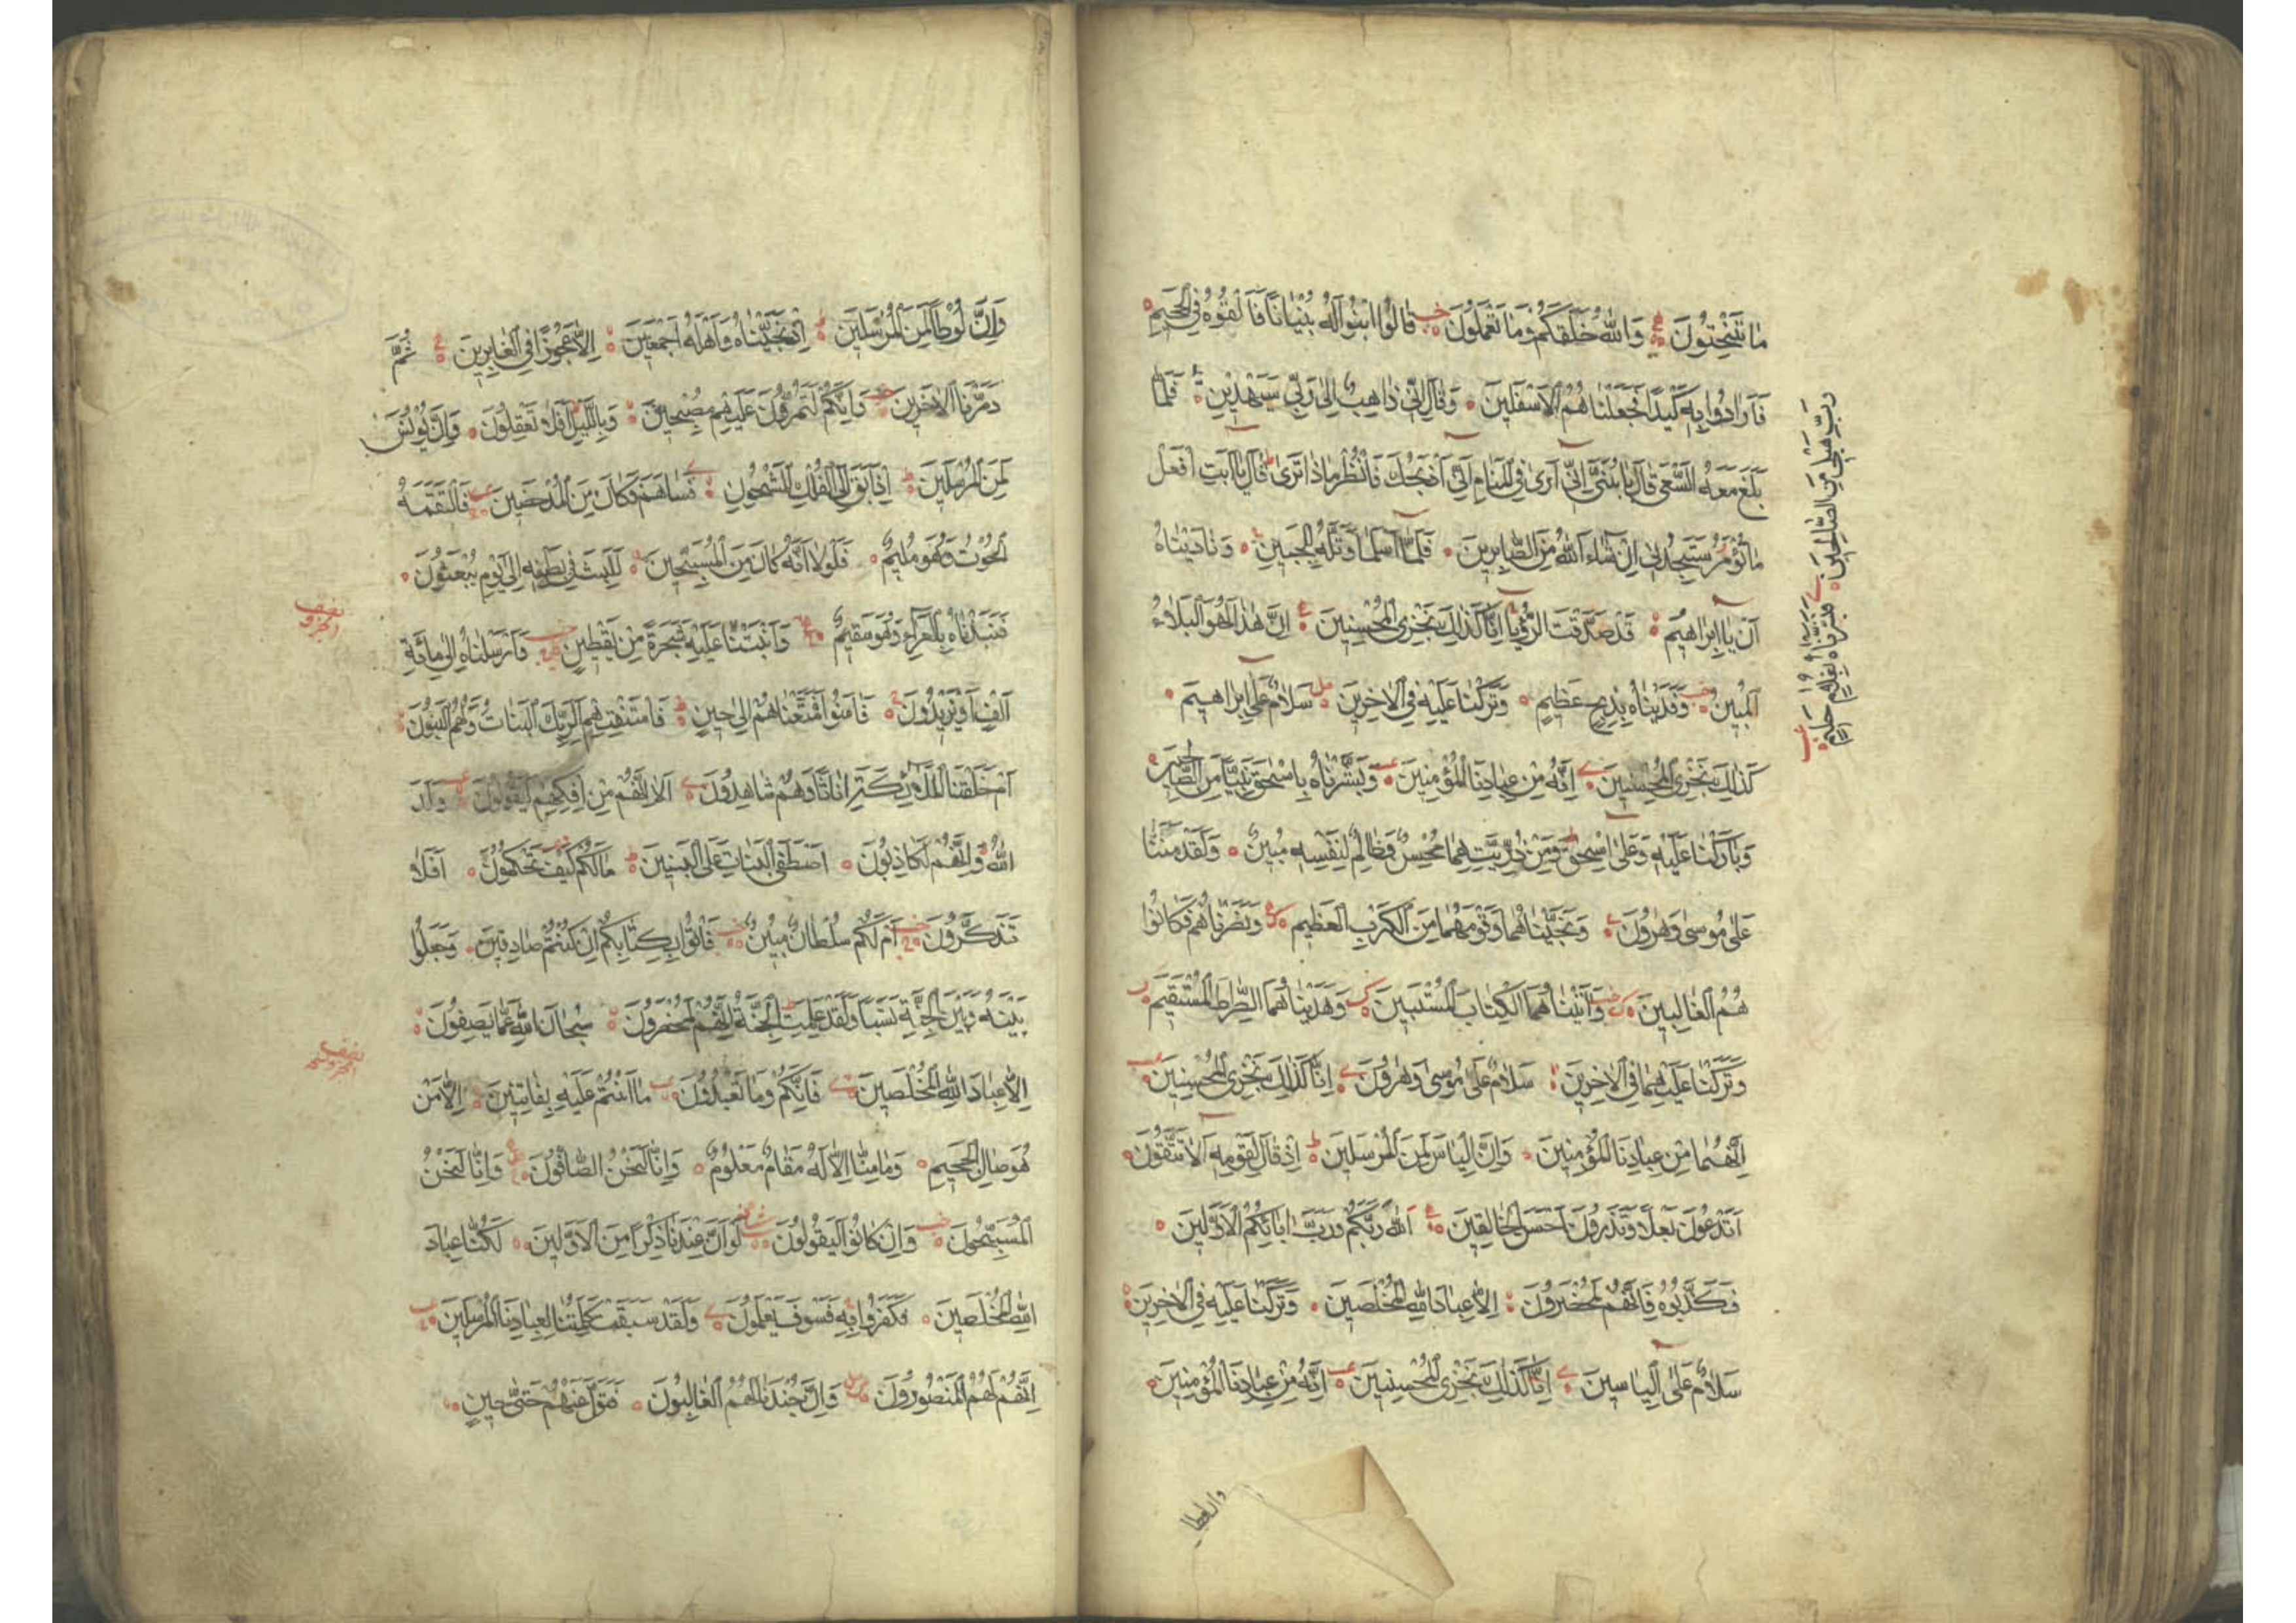 ما تنحتون والله خلقكم وما تعملون قالوا ابنوا له بنيانا فالقوه في الجحيم
فارادوا به كيدا فجعلناهم الاسفلين وقال اني ذاهب الى ربي سيهدين فلما
بلغ معه السعي قال يا بني اني ارى في المنام اني اذبحك فانظر ماذا ترى قال يا ابت افعل
ما تؤمر ستجدني ان شاء الله من الصابرين فلما اسلما وتله للجبين وناديناه
ان يا ابراهيم قد صدقت الرؤيا انا كذلك نجزي المحسنين ان هذا لهو البلاء
المبين وفديناه بذبح عظيم وتركنا عليه في الاخرين سلام على ابراهيم
كذلك نجزي المحسنين انه من عبادنا المؤمنين وبشرناه باسحق نبيا من الصالحين
وباركنا عليه وعلى اسحق ومن ذريتهما محسن وظالم لنفسه مبين ولقد مننا
على موسى وهرون ونجيناهما وقومهما من الكرب العظيم ونصرناهم فكانوا
هم الغالبين وآتيناهما الكتاب المستبين وهديناهما الصراط المستقيم
وتركنا عليهما في الاخرين سلام على موسى وهرون انا كذلك نجزي المحسنين
انهما من عبادنا المؤمنين وان الياس لمن المرسلين اذ قال لقومه الا تتقون
اتدعون بعلا وتذرون احسن الخالقين الله ربكم ورب ابائكم الاولين
فكذبوه فانهم لمحضرون الا عباد الله المخلصين وتركنا عليه في الاخرين
سلام على الياسين انا كذلك نجزي المحسنين انه من عبادنا المؤمنين
رب هب لي من الصالحين
فبشرناه بغلام حليم
وان لوطا لمن المرسلين اذ نجيناه واهله اجمعين الا عجوزا في الغابرين ثم
دمرنا الاخرين وانكم لتمرون عليهم مصبحين وبالليل افلا تعقلون وان يونس
لمن المرسلين اذ ابق الى الفلك المشحون فساهم فكان من المدحضين فالتقمه
الحوت وهو مليم فلولا انه كان من المسبحين للبث في بطنه الى يوم يبعثون
فنبذناه بالعراء وهو سقيم وانبتنا عليه شجرة من يقطين وارسلناه الى مائة
الف او يزيدون فامنوا فمتعناهم الى حين فاستفتهم الربك البنات ولهم البنون
ام خلقنا الملائكة اناثا وهم شاهدون الا انهم من افكهم ليقولون ولد
الله وانهم لكاذبون اصطفى البنات على البنين مالكم كيف تحكمون افلا
تذكرون ام لكم سلطان مبين فاتوا بكتابكم ان كنتم صادقين وجعلوا
بينه وبين الجنة نسبا ولقد علمت الجنة انهم لمحضرون سبحان الله عما يصفون
الا عباد الله المخلصين فانكم وما تعبدون ما انتم عليه بفاتنين الا من
هو صال الجحيم وما منا الا له مقام معلوم وانا لنحن الصافون وانا لنحن
المسبحون وان كانوا ليقولون لو ان عندنا ذكرا من الاولين لكنا عباد
الله المخلصين فكفروا به فسوف يعلمون ولقد سبقت كلمتنا لعبادنا المرسلين
انهم لهم المنصورون وان جندنا لهم الغالبون فتول عنهم حتى حين
نصف
الجزو
نصف